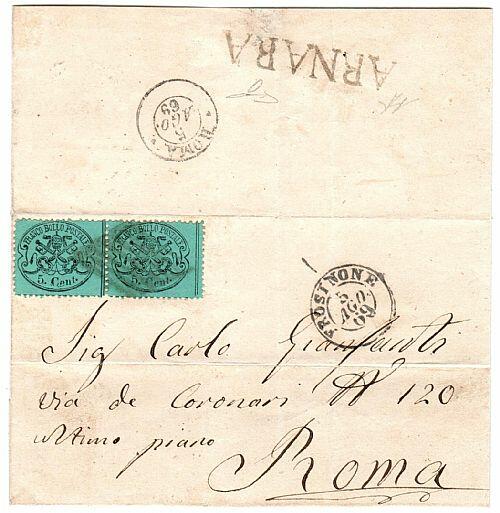 ARNARA
ROMA
5
AGO
69
FRANCO BOLLO POSTALE
5. Cent.
FRANCO BOLLO POSTALE
5. Cent.
FROSINONE
5
AGO.
69
Sig Carlo
via de Coronari N 120
ultimo piano
Roma